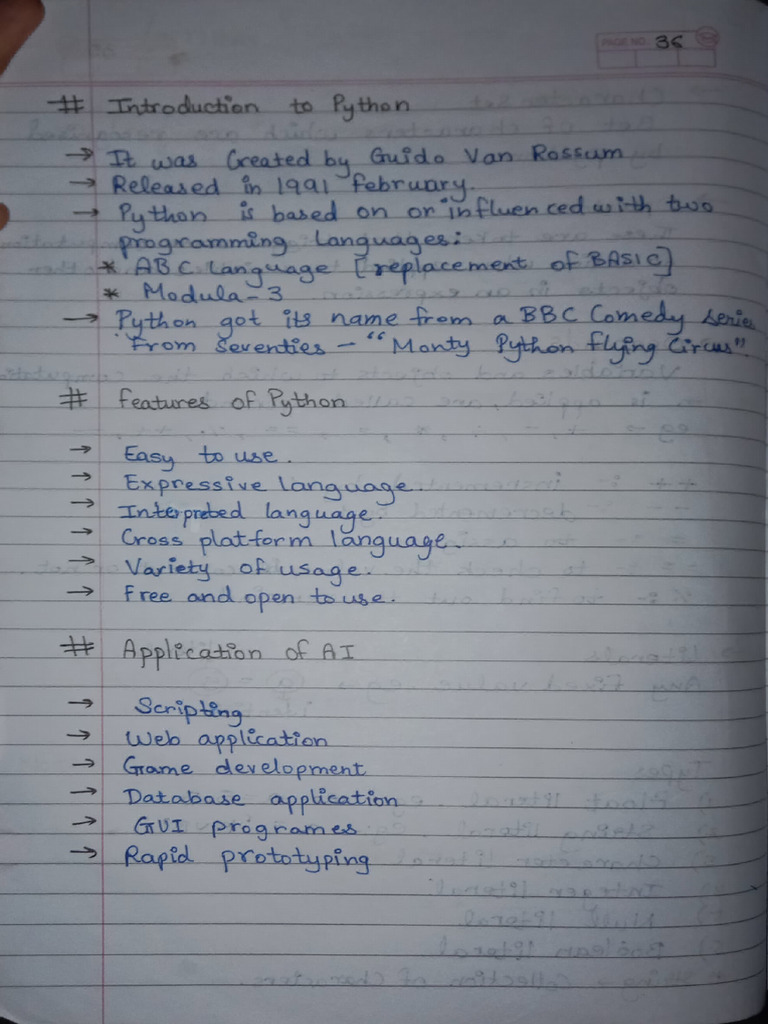 PAGE NO. 36
# Introduction to Python
→ It was Created by Guido Van Rossum
→ Released in 1991 February.
→ Python is based on or influenced with two
programming Languages:
* ABC Language [replacement of BASIC]
* Modula-3
→ Python got its name from a BBC Comedy series
From seventies - "Monty Python flying Circus".
# features of Python
→ Easy to use.
→ Expressive language.
→ Interpreted language.
→ Cross platform language.
→ Variety of usage.
→ Free and open to use.
# Application of AI
→ Scripting
→ Web application
→ Game development
→ Database application
→ GUI programes
→ Rapid prototyping